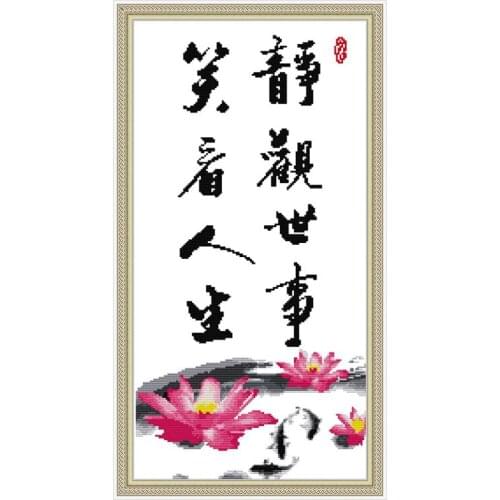 靜觀世事
笑看人生